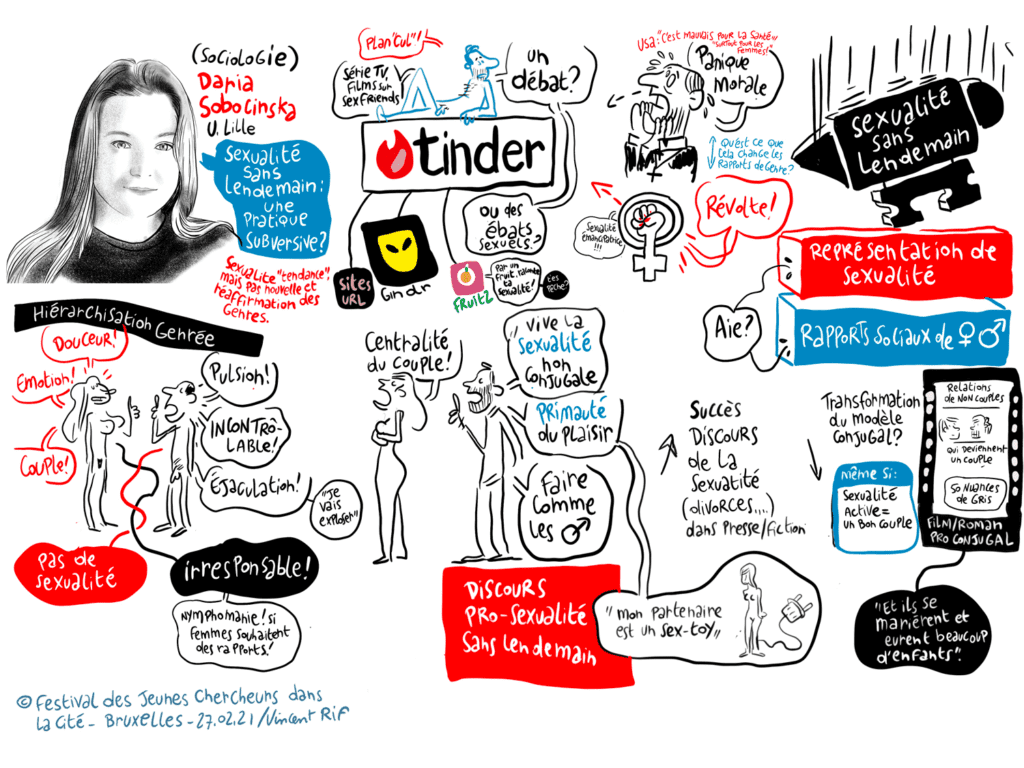 (Sociologie)
Daria
Sobocinska
U. Lille
Sexualité
sans
Lendemain:
une
Pratique
subversive?
Sexualité "tendance"
mais pas nouvelle et
réaffirmation des
Genres.
Plan"cul"!
Série TV,
Films sur
sexfriends
un
débat?
tinder
ou des
ébats
sexuels?
sites
URL
Gindr
FRUITZ
Par un
fruit, raconte
ta
sexualité!
t'es
Pêche?
Usa: "c'est mauvais pour la santé"
"surtout pour les
femmes!"
Panique
morale
Qu'est ce que
cela change les
Rapports de Genre?
Sexualité
émancipatrice
!!!
Révolte!
sexualité
sans
Lendemain
Représentation de
sexualité
Aïe?
Rapports sociaux de ♀♂
Hiérarchisation Genrée
Douceur!
Emotion!
Couple!
Pulsion!
INCONTRÔ-
LABLE!
Éjaculation!
"Je
vais
exploser"
Pas de
sexualité
irresponsable!
Nymphomanie! si
femmes souhaitent
des rapports!
Centralité
du couple!
"Vive la
sexualité
non
conjugale
PRIMAUTÉ
du plaisir
Faire
comme
les ♂
DISCOURS
PRO-SEXUALITÉ
Sans lendemain
"mon partenaire
est un sex-toy"
Succès
DISCOURS
de la
Sexuatité
(divorces....)
dans Presse/fiction
Transformation
du modèle
conjugal?
même si:
Sexualité
Active =
un Bon couple
Relations
de NON couples
qui deviennent
un couple
50 nuances
de Gris
FILM/Roman
PRO CONJUGAL
"Et ils se
marièrent et
eurent beaucoup
d'enfants".
© Festival des Jeunes Chercheurs dans
la Cité - Bruxelles - 27.02.21 /Vincent Rif